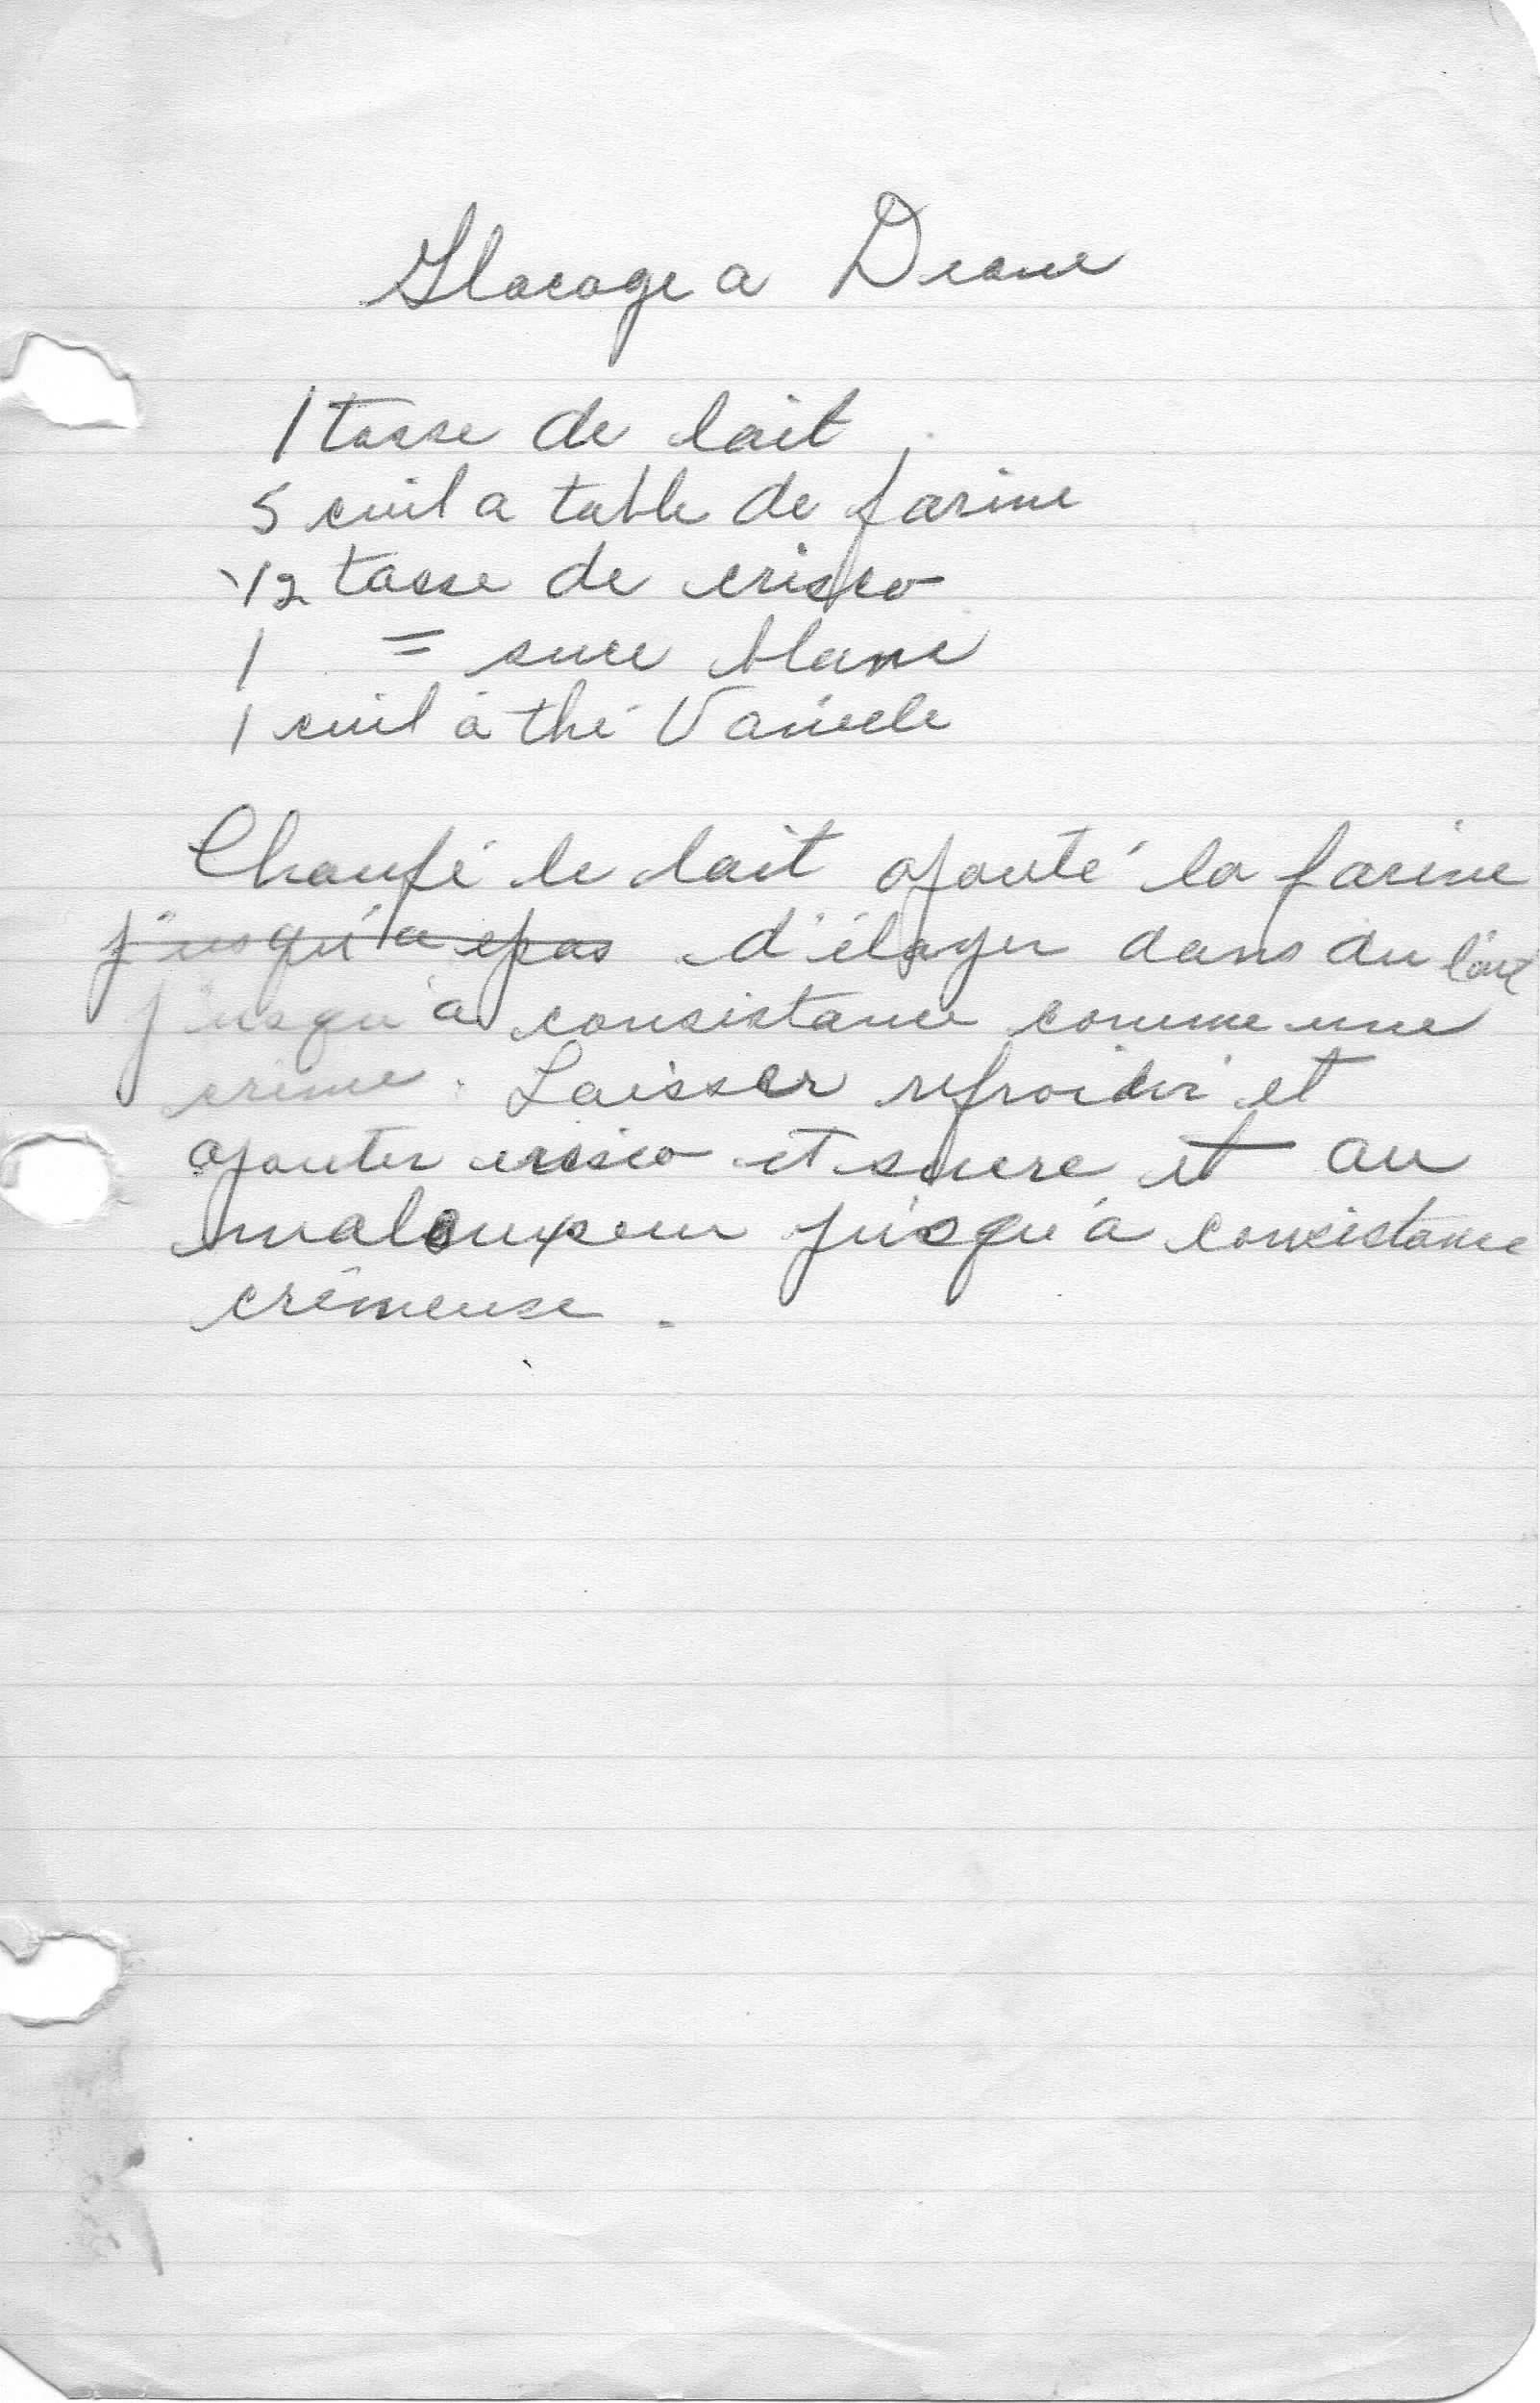 Glacage a Diane
1 tasse de lait
5 cuil a table de farine
1/2 tasse de crisco
1 = sucre blanc
1 cuil à thé Vanielle
Chaufé le lait ajouté la farine
jusqu'a epas d'élayer dans du lait
jusqu'a consistance comme une
crème. Laisser refroidir et
ajouter crisco et sucre et au
malaxeur jusqu'à consistance
crèmeuse.